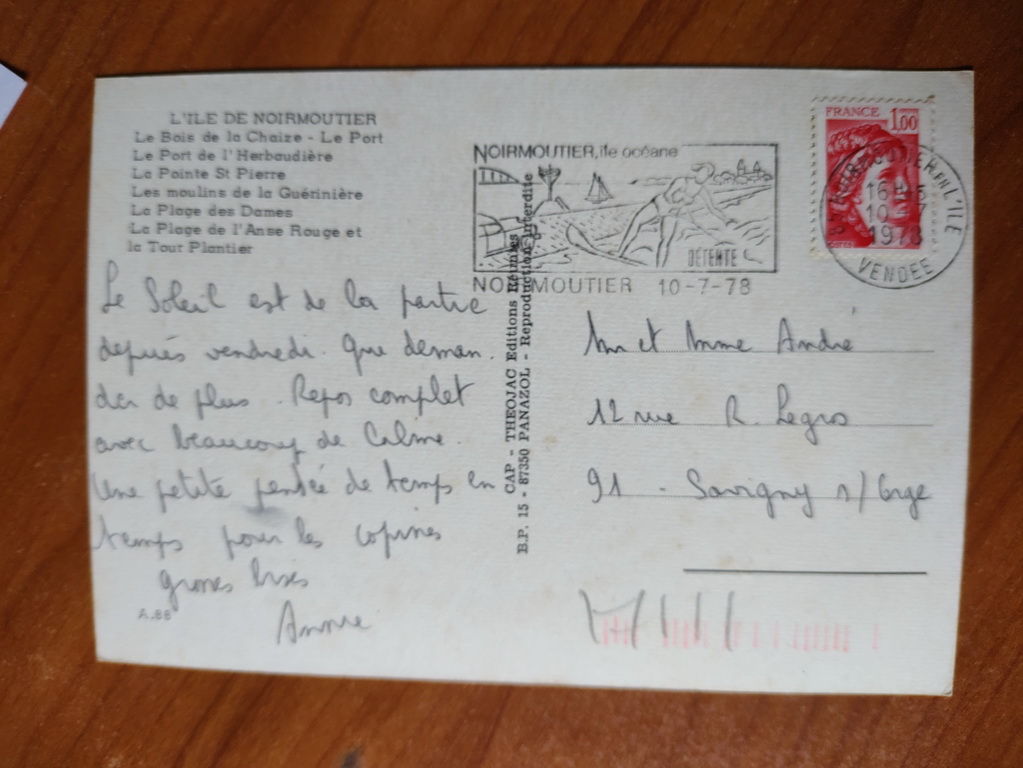 L'ILE DE NOIRMOUTIER
Le Bois de la Chaize - Le Port
Le Port de l'Herbaudière
La Pointe St Pierre
Les moulins de la Guérinière
La Plage des Dames
La Plage de l'Anse Rouge et
la Tour Plantier
Le Soleil est de la partie
depuis vendredi. Que deman.
der de plus. Repos complet
avec beaucoup de Calme.
Une petite pensée de temps en
temps pour les copines
Grosses bises
Annie
A.88
CAP - THEOJAC Editions Réunies
B.P. 15 - 87350 PANAZOL - Reproduction interdite
NOIRMOUTIER, île océane
DETENTE
NOIRMOUTIER 10-7-78
FRANCE 1,00
NOIRMOUTIER EN L'ILE
16H
10
1978
VENDEE
Mr et Mme André
12 rue R. Legros
91 - Savigny s/ Orge